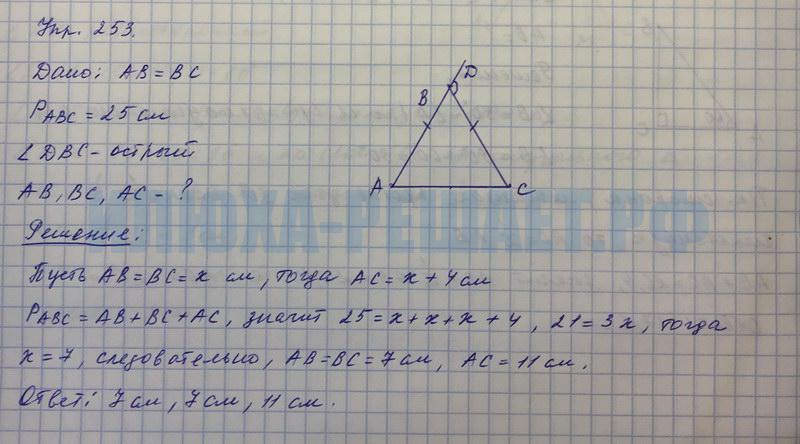 Упр. 253.
Дано: AB = BC
P ABC = 25 см
∠ DBC - острый
AB, BC, AC - ?
Решение:
Пусть AB = BC = x см, тогда AC = x + 4 см
P ABC = AB + BC + AC, значит 25 = x + x + x + 4, 21 = 3x, тогда
x = 7, следовательно, AB = BC = 7 см, AC = 11 см.
Ответ: 7 см, 7 см, 11 см.
D
B
A
C
-РЕШАЕТ.РФ